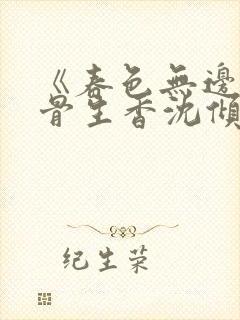 《春色無邊
骨生香沈傾
纪生荣